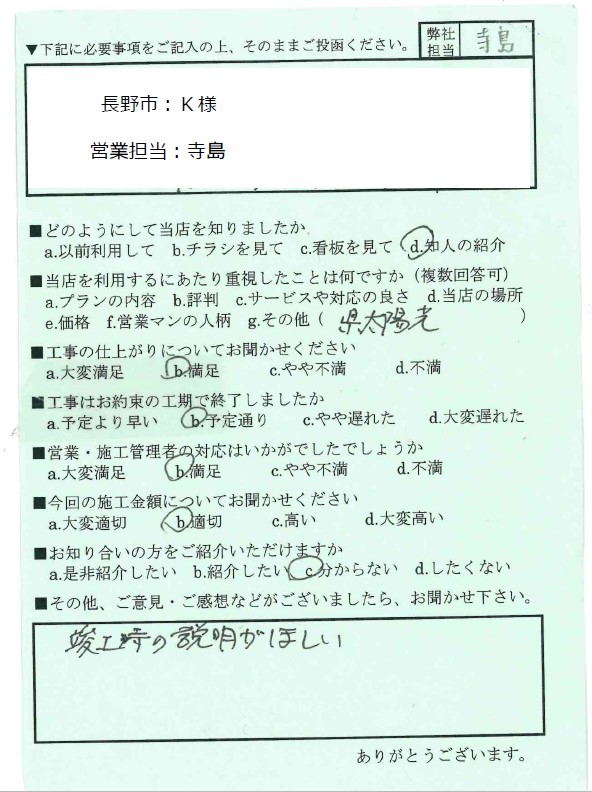 ▼下記に必要事項をご記入の上、そのままご投函ください。
弊社
担当
寺島
長野市：Ｋ様
営業担当：寺島
■どのようにして当店を知りましたか
a.以前利用して b.チラシを見て c.看板を見て d.知人の紹介
■当店を利用するにあたり重視したことは何ですか（複数回答可）
a.プランの内容 b.評判 c.サービスや対応の良さ d.当店の場所
e.価格 f.営業マンの人柄 g.その他（ 県太陽光 ）
■工事の仕上がりについてお聞かせください
a.大変満足 b.満足 c.やや不満 d.不満
■工事はお約束の工期で終了しましたか
a.予定より早い b.予定通り c.やや遅れた d.大変遅れた
■営業・施工管理者の対応はいかがでしたでしょうか
a.大変満足 b.満足 c.やや不満 d.不満
■今回の施工金額についてお聞かせください
a.大変適切 b.適切 c.高い d.大変高い
■お知り合いの方をご紹介いただけますか
a.是非紹介したい b.紹介したい c.分からない d.したくない
■その他、ご意見・ご感想などがございましたら、お聞かせ下さい。
竣工時の説明がほしい
ありがとうございます。